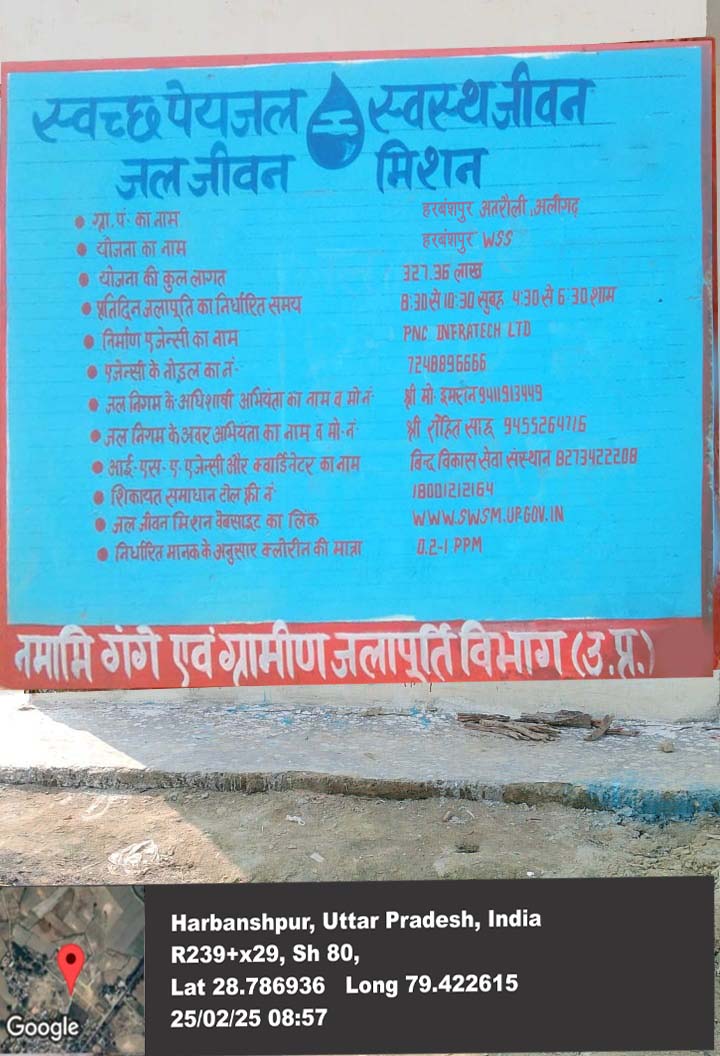 स्वच्छ पेयजल स्वस्थ जीवन
जल जीवन मिशन
ग्रा. पं. का नाम हरबंशपुर अतरौली, अलीगढ़
योजना का नाम हरबंशपुर WSS
योजना की कुल लागत 327.36 लाख
प्रतिदिन जलापूर्ति का निर्धारित समय 8:30 से 10:30 सुबह 4:30 से 6:30 शाम
निर्माण एजेन्सी का नाम PNC INFRATECH LTD
एजेन्सी के नोडल का नं- 7248896666
जल निगम के अधिशाषी अभियंता का नाम व मो-नं- श्री मो. इमरान 9411913449
जल निगम के अवर अभियंता का नाम व मो-नं श्री रोहित साहू 9455264716
आई-एस-ए-एजेन्सी और क्वार्डिनेटर का नाम बिन्दु विकास सेवा संस्थान 8273422208
शिकायत समाधान टोल फ्री नं- 18001212164
जल जीवन मिशन वेबसाइट का लिंक WWW.SWSM.UP.GOV.IN
निर्धारित मानक के अनुसार क्लोरीन की मात्रा 0.2-1 PPM
नमामि गंगे एवं ग्रामीण जलापूर्ति विभाग (उ.प्र.)
Harbanshpur, Uttar Pradesh, India
R239+x29, Sh 80,
Lat 28.786936 Long 79.422615
25/02/25 08:57
Google